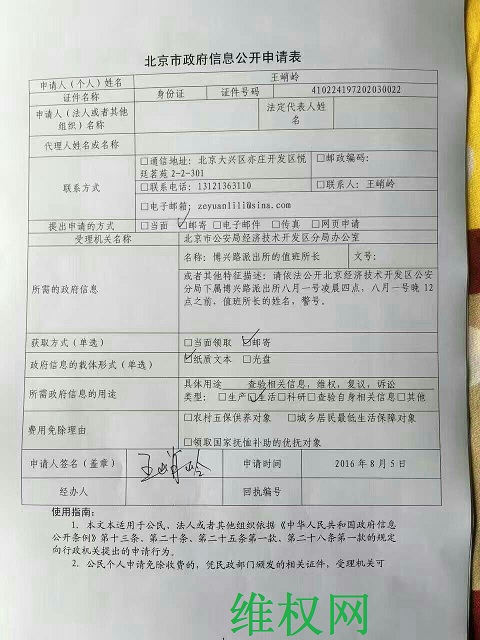 北京市政府信息公开申请表
申请人（个人）姓名 王峭岭
证件名称 身份证 证件号码 410224197202030022
申请人（法人或者其他
组织）名称
法定代表人姓
名
代理人姓名或名称
联系方式
□通信地址：北京大兴区亦庄开发区悦
廷茗苑 2-2-301
□邮政编码：
□联系电话：13121363110 □联系人：王峭岭
□电子邮箱：zeyuanlili@sina.com
提出申请的方式 □当面 □邮寄 □电子邮件 □传真 □网页申请
受理机关名称 北京市公安局经济技术开发区分局办公室
所需的政府信息
名称：博兴路派出所的值班所长 文号：
或者其他特征描述：请依法公开北京经济技术开发区公安
分局下属博兴路派出所八月一号凌晨四点，八月一号晚 12
点之前，值班所长的姓名，警号。
获取方式（单选） □当面领取 □邮寄
政府信息的载体形式（单选） □纸质文本 □光盘
所需政府信息的用途
具体用途 查验相关信息，维权，复议，诉讼
类型：□生产□生活□科研□查验自身相关信息□其他
费用免除理由
□农村五保供养对象 □城乡居民最低生活保障对象
□领取国家抚恤补助的优抚对象
申请人签名（盖章） 王峭岭 申请时间 2016 年 8 月 5 日
经办人 回执编号
使用指南：
1. 本文本适用于公民，法人或者其他组织依据《中华人民共和国政府信息
公开条例》第十三条、第二十条、第二十五条第一款、第二十八条第一款的规定
向行政机关提出的申请行为。
2. 公民个人申请免除收费的，凭民政部门颁发的相关证件，受理机关可
维权网